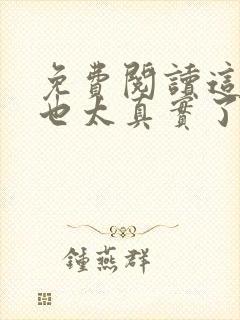 免費閱讀這
也太真實了
鍾燕群